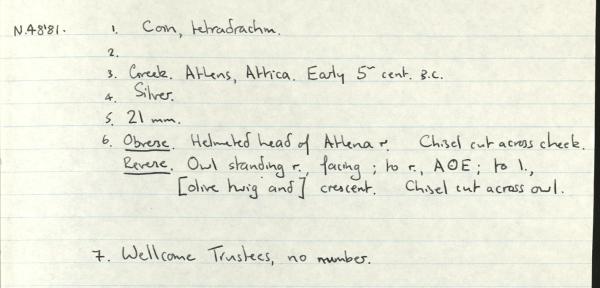 N.48'81. 1. Coin, tetradrachm.
2.
3. Greek. Athens, Attica. Early 5th cent. B.C.
4. Silver.
5. 21 mm.
6. Obverse. Helmeted head of Athena r. Chisel cut across cheek.
Reverse. Owl standing r., facing; to r., AΘE; to l.,
[olive twig and] crescent. Chisel cut across owl.
7. Wellcome Trustees, no number.